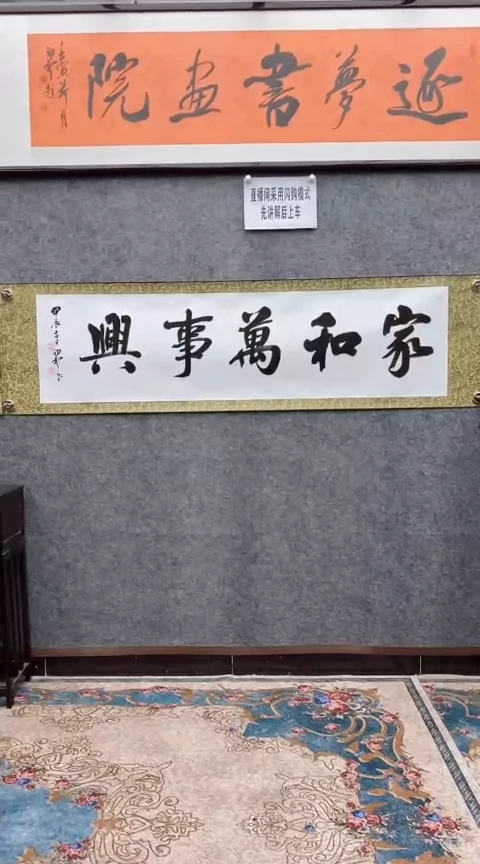 逐夢書画院
直播间采用闪购模式
先讲解后上车
家和萬事興